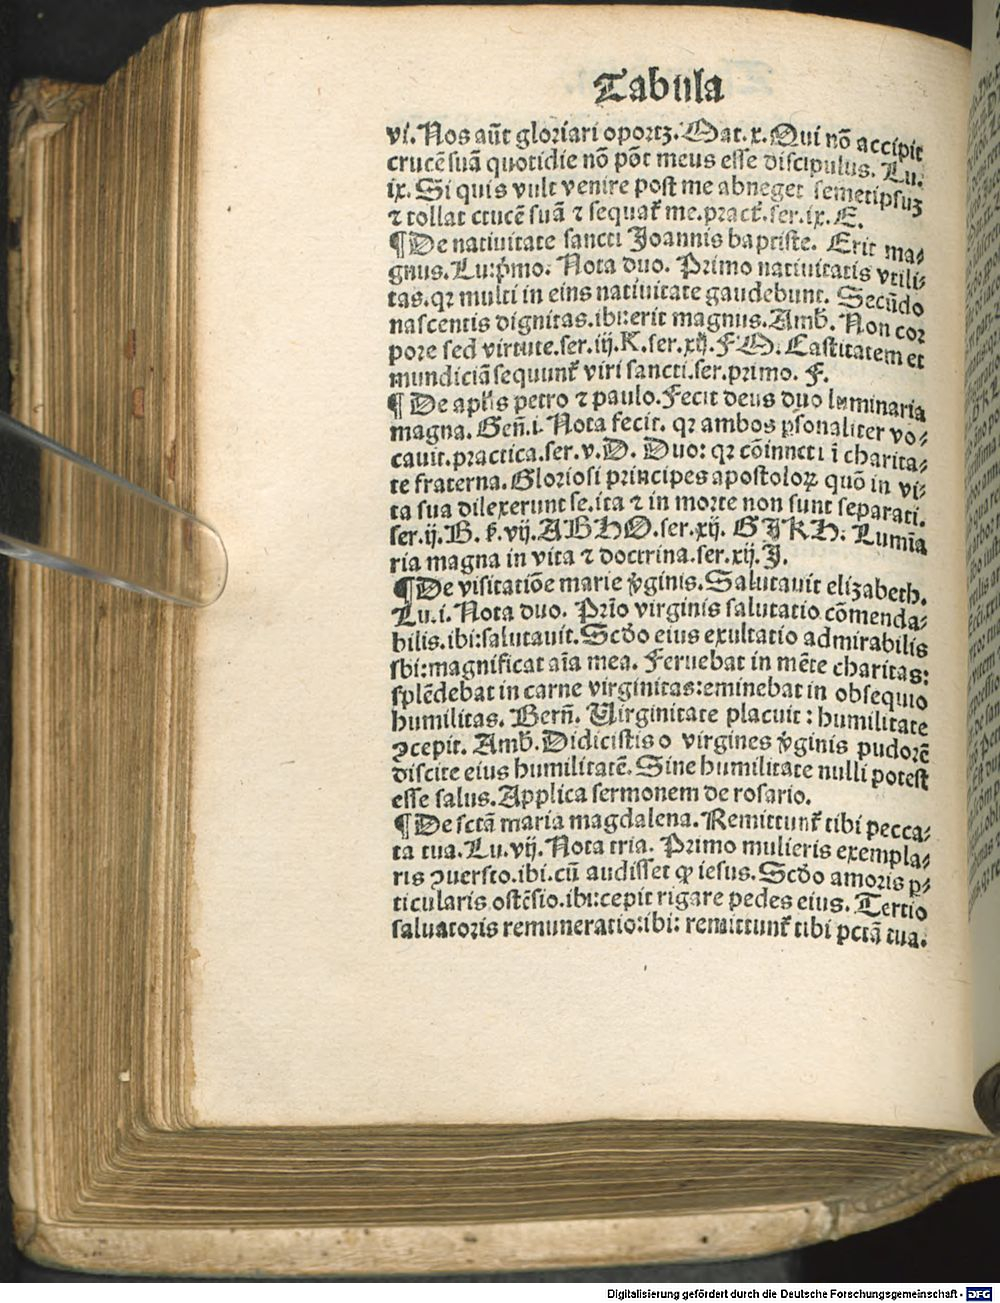 Tabula
vi. Nos aūt gloriari oportꝫ. Mat. x. Qui nō accipit
crucē suā quotidie nō pōt meus esse discipulus. Lu.
ix. Si quis vult venire post me abneget semetipsuꝫ
⁊ tollat crucē suā ⁊ sequat᷑ me. pract᷑. ser. ix. E.
¶ De natiuitate sancti Joannis baptiste. Erit ma⸗
gnus. Lu: p̄mo. Nota duo. Primo natiuitatis vtili⸗
tas. qꝛ multi in eius natiuitate gaudebunt. Secūdo
nascentis dignitas. ibi: erit magnus. Amb̄. Non cor
pore sed virtute. ser. iij. K. ser. xij. F M. Castitatem et
mundiciā sequunt᷑ viri sancti. ser. primo. F.
¶ De apl̄is petro ⁊ paulo. Fecit deus duo luminaria
magna. Gen̄. i. Nota fecit. qꝛ ambos ꝑsonaliter vo⸗
cauit. practica. ser. v. D. Duo: qꝛ cōiuncti ī charita⸗
te fraterna. Gloriosi principes apostoloꝝ quō in vi⸗
ta sua dilexerunt se. ita ⁊ in morte non sunt separati.
ser. ij. B. vij. A B H O. ser. xij. G J K H. Lumīa
ria magna in vita ⁊ doctrina. ser. xij. J.
¶ De visitatiōe marie v̄ginis. Salutauit elizabeth.
Lu. i. Nota duo. Prīo virginis salutatio cōmenda⸗
bilis. ibi: salutauit. Scd̄o eius exultatio admirabilis
ibi: magnificat aīa mea. Feruebat in mēte charitas:
splēdebat in carne virginitas: eminebat in obsequio
humilitas. Bern̄. Uirginitate placuit: humilitate
ꝯcepit. Amb̄. Didicistis o virgines v̄ginis pudorē
discite eius humilitatē. Sine humilitate nulli potest
esse salus. Applica sermonem de rosario.
¶ De sctā maria magdalena. Remittunt᷑ tibi pecca⸗
ta tua. Lu. vij. Nota tria. Primo mulieris exempla⸗
ris ꝯuersio. ibi. cū audisset ꝙ iesus. Scd̄o amoris ꝑ⸗
ticularis ostēsio. ibi: cepit rigare pedes eius. Tertio
saluatoris remuneratio: ibi: remittunt᷑ tibi pctā tua.
Digitalisierung gefördert durch die Deutsche Forschungsgemeinschaft - DFG